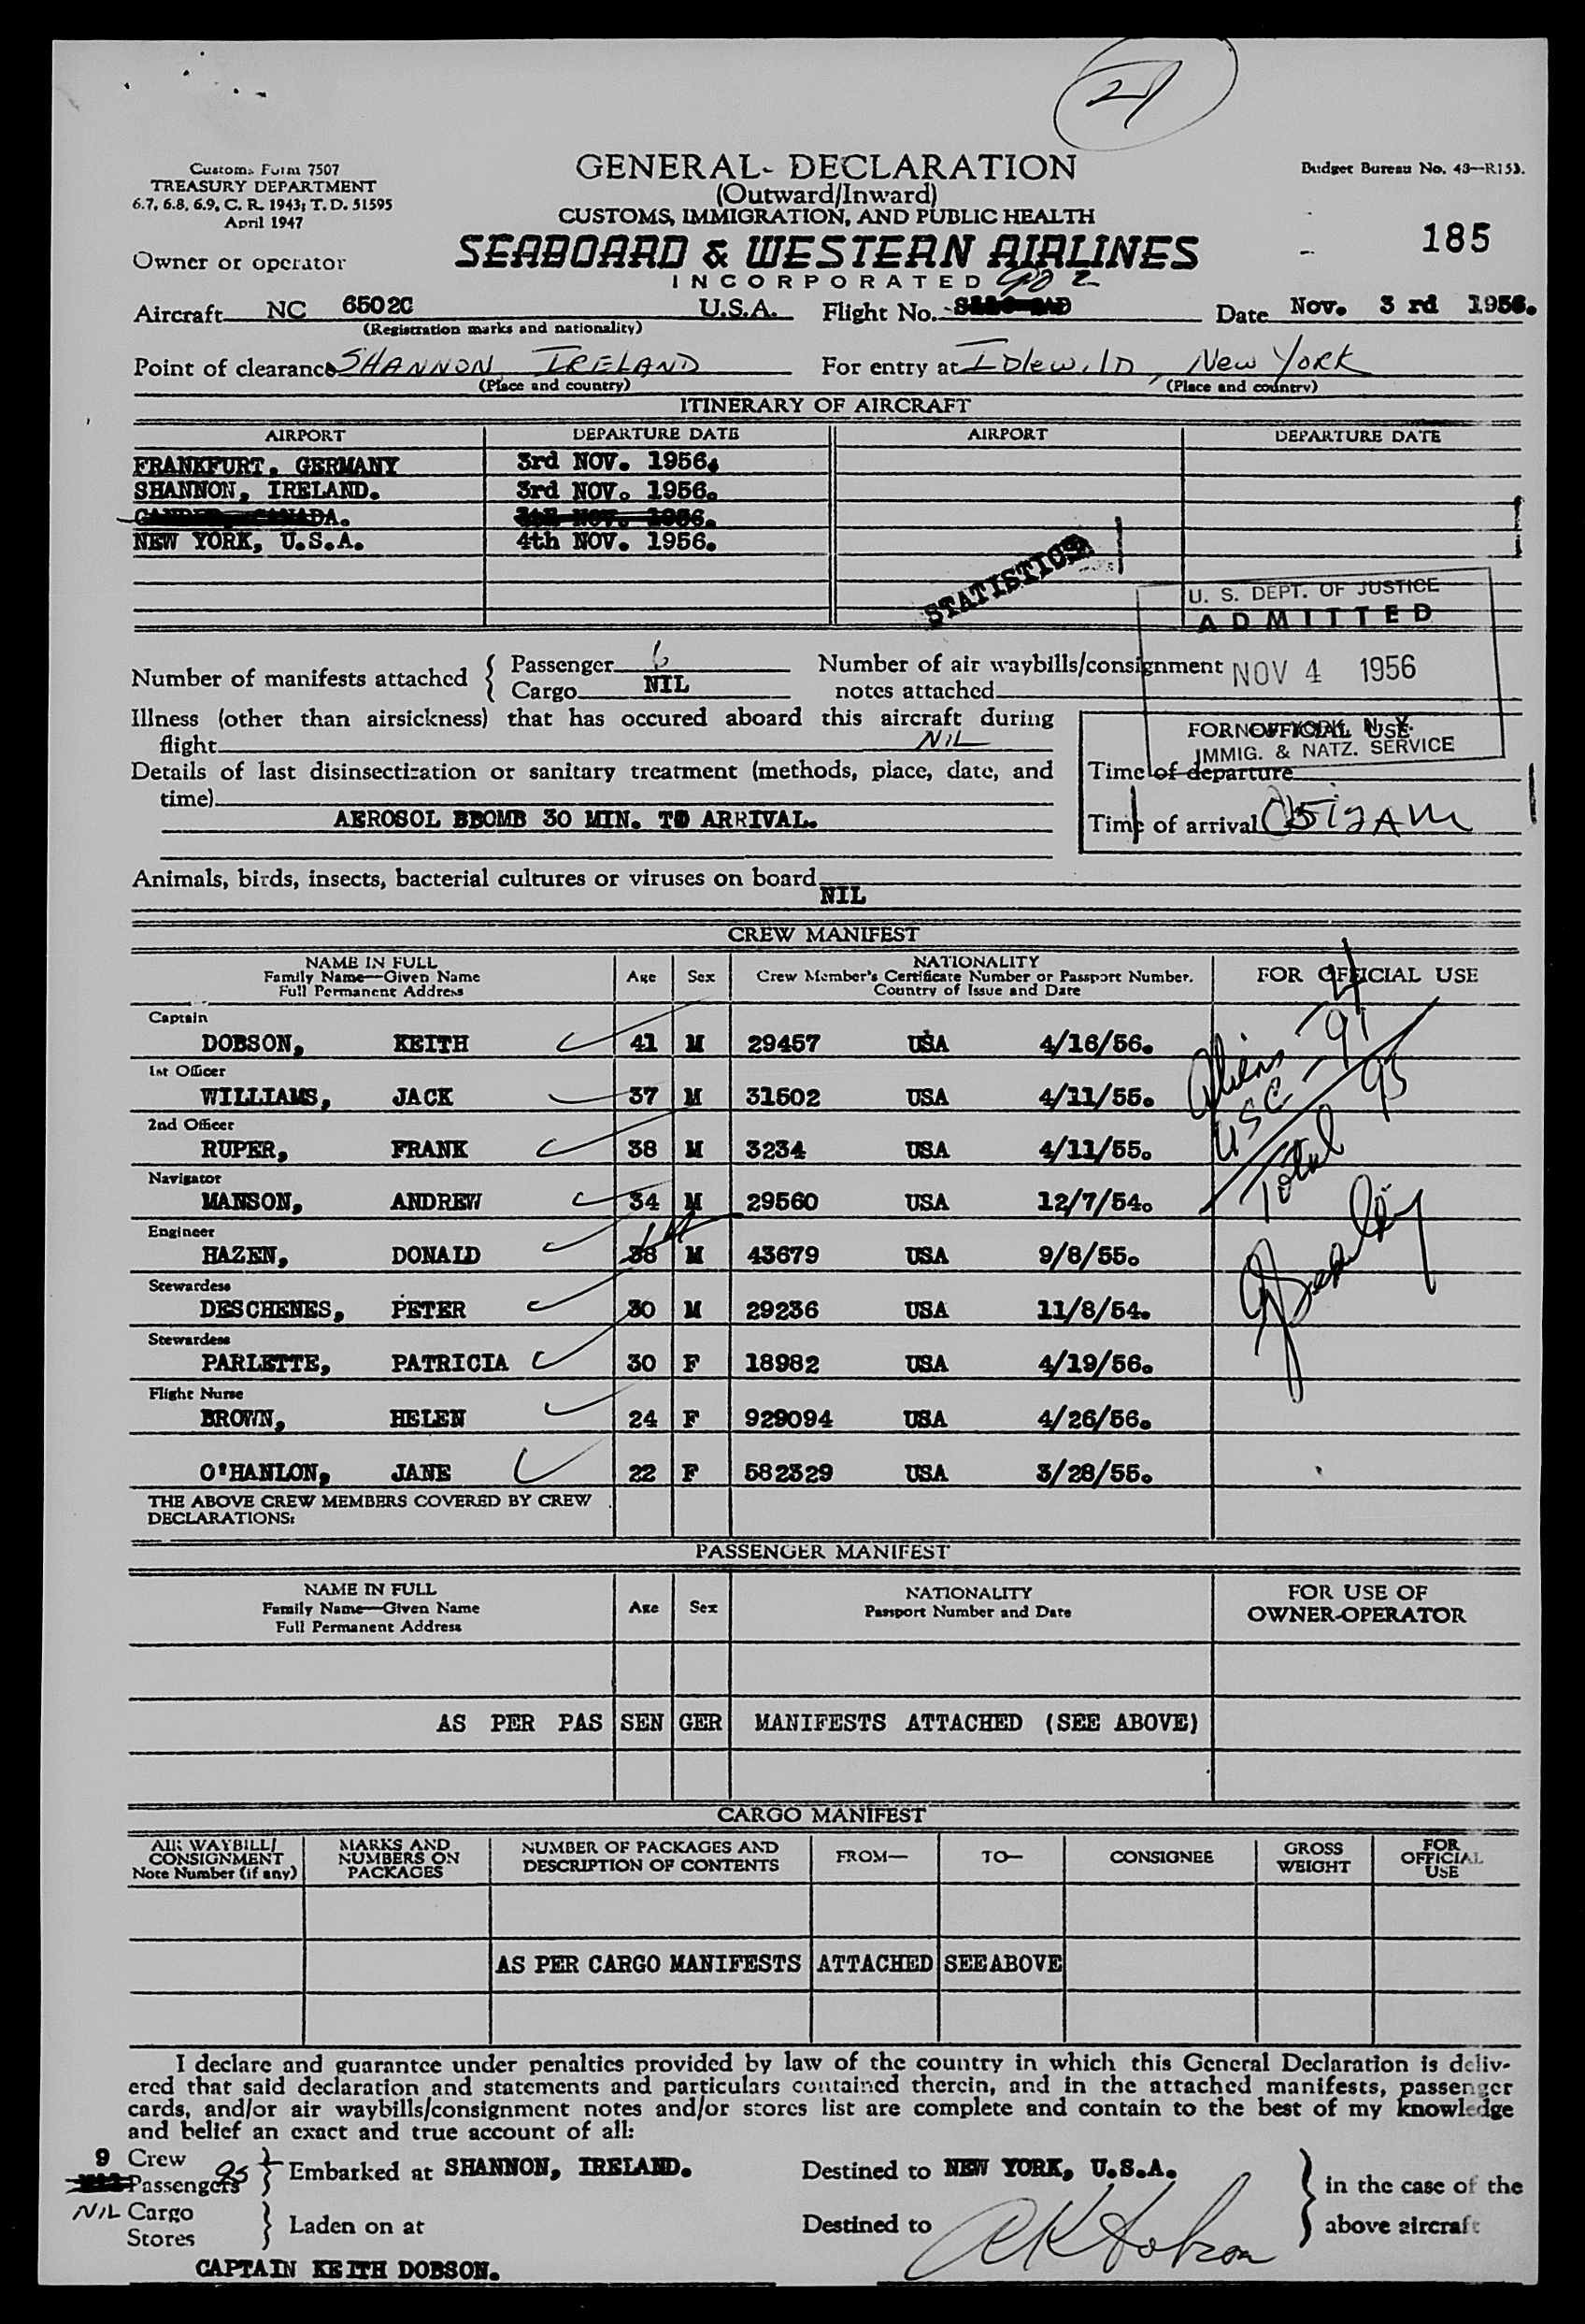 21
Customs Form 7507
TREASURY DEPARTMENT
6.7, 6.8, 6.9, C. R. 1943; T. D. 51595
April 1947
GENERAL- DECLARATION
(Outward/Inward)
CUSTOMS, IMMIGRATION, AND PUBLIC HEALTH
Budget Bureau No. 43—R153.
185
Owner or operator SEABOARD & WESTERN AIRLINES
INCORPORATED
902
Aircraft NC 6502C U.S.A. Flight No. Date Nov. 3 rd 1956.
(Registration marks and nationality)
Point of clearance SHANNON IRELAND For entry at Idlewild, New York
(Place and country) (Place and country)
ITINERARY OF AIRCRAFT
AIRPORT DEPARTURE DATE AIRPORT DEPARTURE DATE
FRANKFURT, GERMANY 3rd NOV. 1956.
SHANNON, IRELAND. 3rd NOV. 1956.
GANDER, CANADA. 4th NOV. 1956.
NEW YORK, U.S.A. 4th NOV. 1956.
STATISTICS
U. S. DEPT. OF JUSTICE
ADMITTED
NOV 4 1956
NEW YORK, N.Y.
IMMIG. & NATZ. SERVICE
Number of manifests attached { Passenger 6 Number of air waybills/consignment
Cargo NIL notes attached
Illness (other than airsickness) that has occured aboard this aircraft during
flight NIL
Details of last disinsectization or sanitary treatment (methods, place, date, and
time)
AEROSOL BBOMB 30 MIN. TO ARRIVAL.
FOR OFFICIAL USE
Time of departure
Time of arrival 0512AM
Animals, birds, insects, bacterial cultures or viruses on board
NIL
CREW MANIFEST
NAME IN FULL
Family Name—Given Name
Full Permanent Address
Age Sex
NATIONALITY
Crew Member's Certificate Number or Passport Number.
Country of Issue and Date
FOR OFFICIAL USE
Captain
DOBSON, KEITH 41 M 29457 USA 4/16/56.
1st Officer
WILLIAMS, JACK 37 M 31502 USA 4/11/55.
2nd Officer
RUPER, FRANK 38 M 3234 USA 4/11/55.
Navigator
MANSON, ANDREW 34 M 29560 USA 12/7/54.
Engineer
HAZEN, DONALD 38 M 43679 USA 9/8/55.
Stewardess
DESCHENES, PETER 30 M 29236 USA 11/8/54.
Stewardess
PARLETTE, PATRICIA 30 F 18982 USA 4/19/56.
Flight Nurse
BROWN, HELEN 24 F 929094 USA 4/26/56.
O'HANLON, JANE 22 F 582329 USA 3/28/55.
Aliens - 91
USC - 4
Total 95
THE ABOVE CREW MEMBERS COVERED BY CREW
DECLARATIONS:
PASSENGER MANIFEST
NAME IN FULL
Family Name—Given Name
Full Permanent Address
Age Sex
NATIONALITY
Passport Number and Date
FOR USE OF
OWNER-OPERATOR
AS PER PAS SEN GER MANIFESTS ATTACHED (SEE ABOVE)
CARGO MANIFEST
AIR WAYBILL/
CONSIGNMENT
Note Number (if any)
MARKS AND
NUMBERS ON
PACKAGES
NUMBER OF PACKAGES AND
DESCRIPTION OF CONTENTS
FROM— TO— CONSIGNEE
GROSS
WEIGHT
FOR
OFFICIAL
USE
AS PER CARGO MANIFESTS ATTACHED SEE ABOVE
I declare and guarantee under penalties provided by law of the country in which this General Declaration is deliv-
ered that said declaration and statements and particulars contained therein, and in the attached manifests, passenger
cards, and/or air waybills/consignment notes and/or stores list are complete and contain to the best of my knowledge
and belief an exact and true account of all:
9 Crew
Passengers 95 } Embarked at SHANNON, IRELAND. Destined to NEW YORK, U.S.A. } in the case of the
NIL Cargo
Stores } Laden on at Destined to above aircraft
CAPTAIN KEITH DOBSON.
A K Dobson